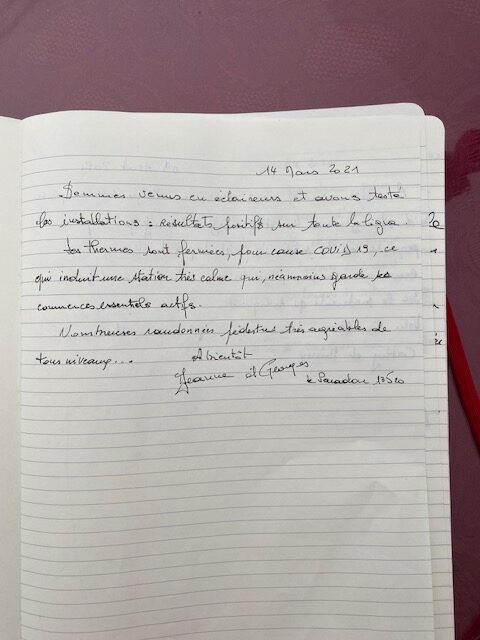 14 Mars 2021
Sommes venus en éclaireurs et avons testé
les installations : résultats positifs sur toute la ligne.
Les thermes sont fermées, pour cause COVID 19, ce
qui induit une station très calme qui, néanmoins garde ses
commerces essentiels actifs.
Nombreuses randonnées pédestres très agréables de
tous niveaux...
A bientôt
Jeanne et Georges